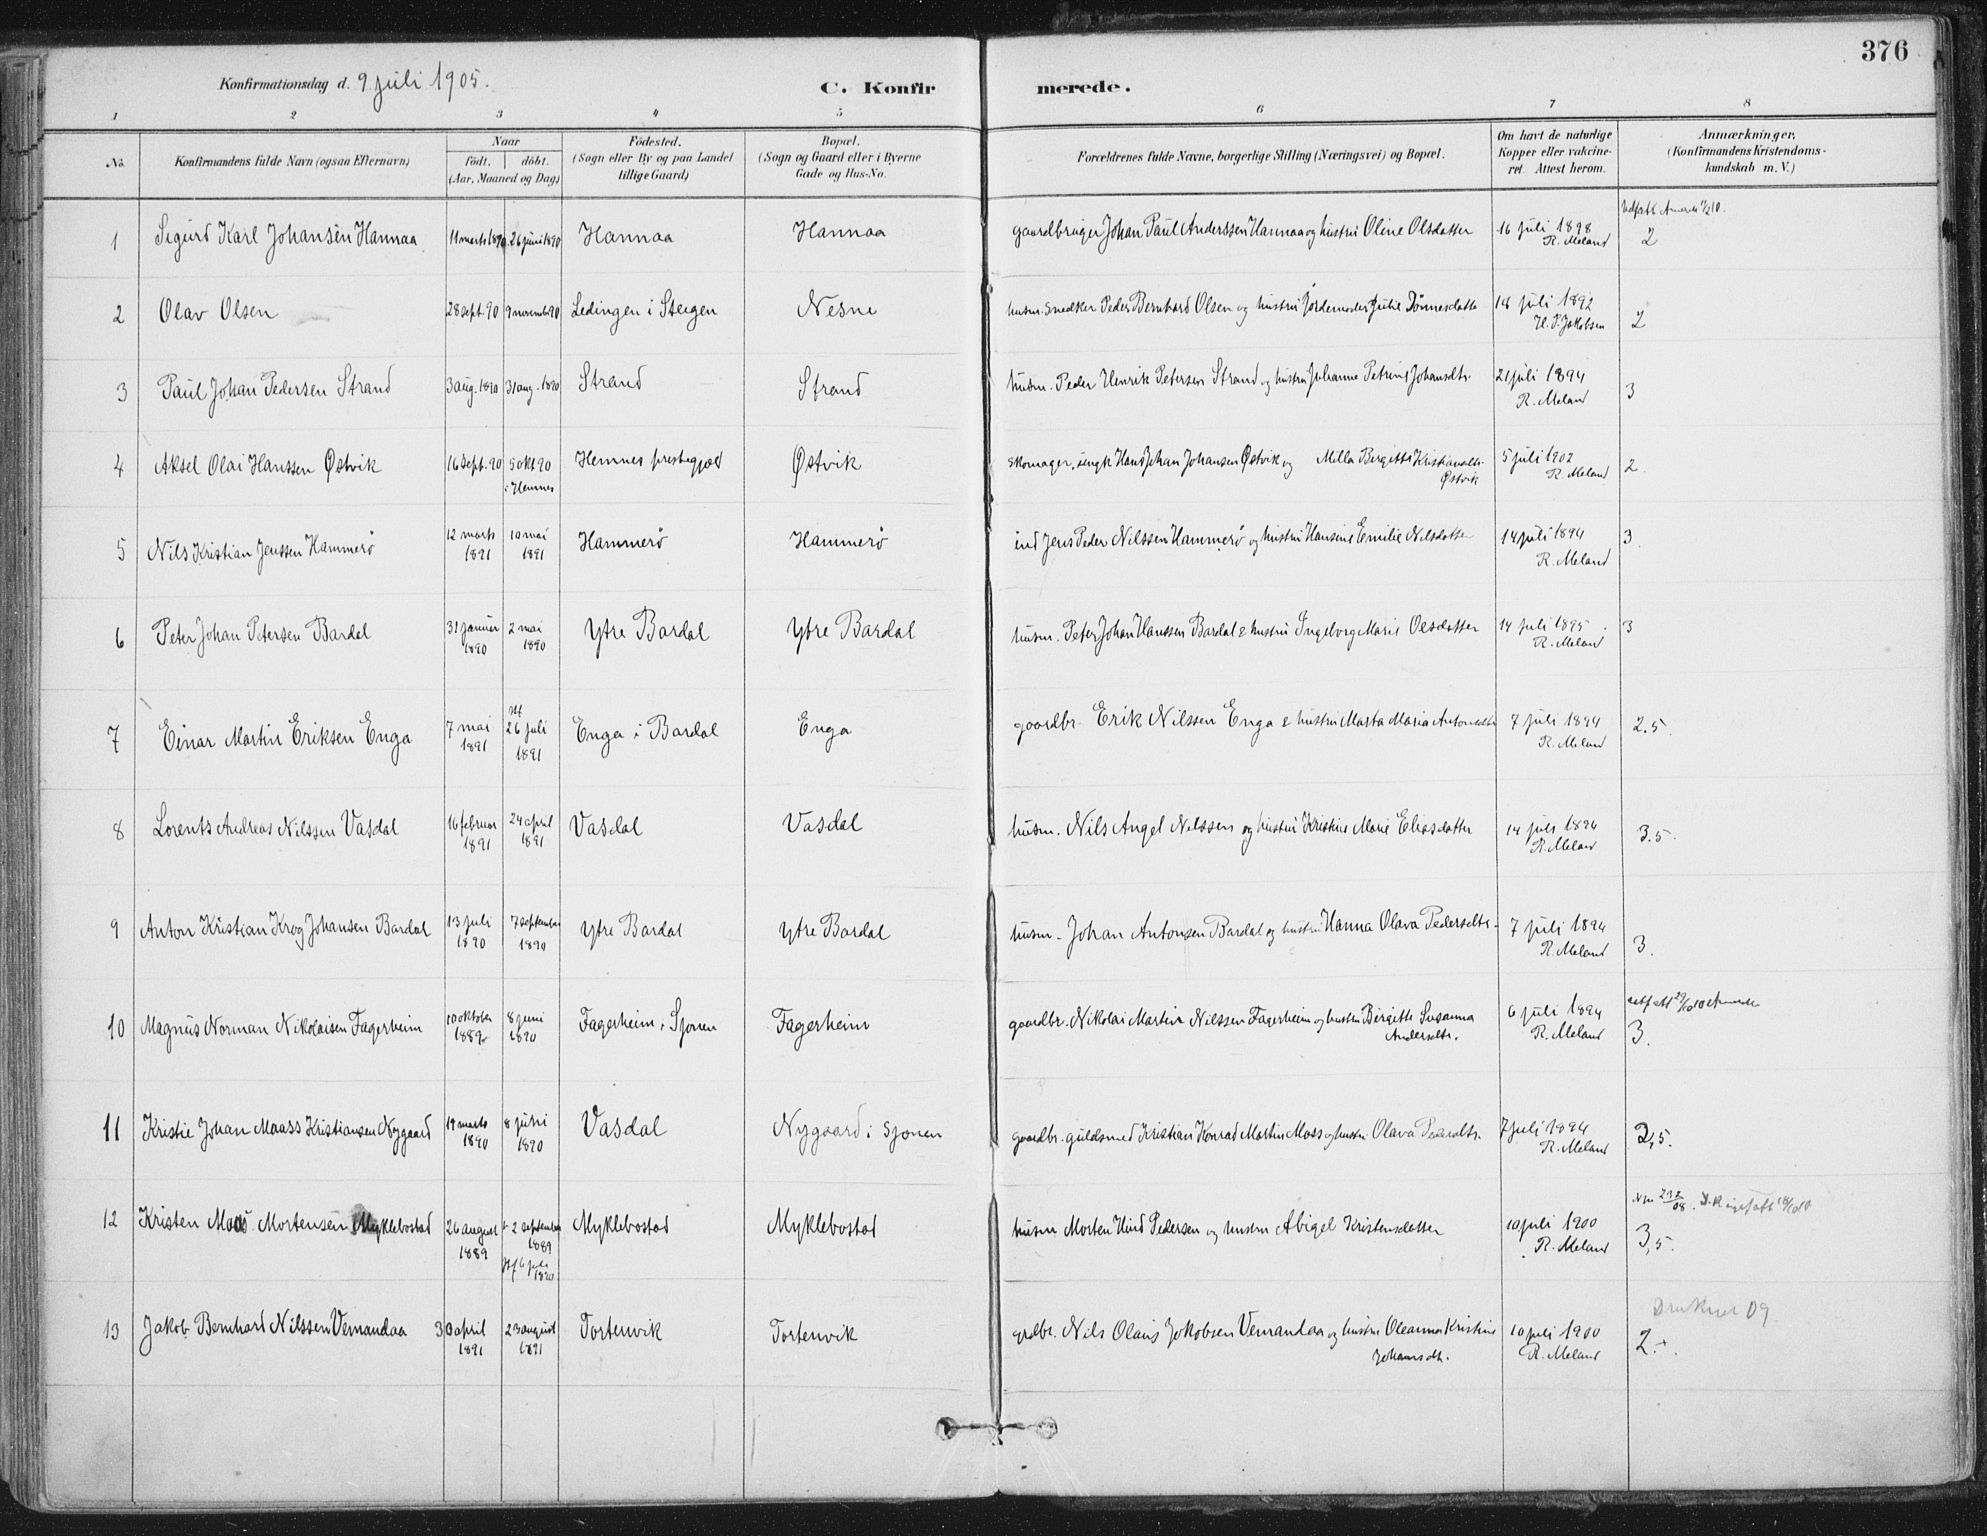 376
Konfirmationsdag d. 9 juli 1905.
C. Konfirmerede.
1 2 3 4 5 6 7 8
No. Konfirmandens fulde Navn (ogsaa Efternavn) Naar født. døbt. (Aar, Maaned og Dag) Fødested. (Sogn eller By og paa Landet tillige Gaard) Bopæl. (Sogn og Gaard eller i Byerne Gade og Hus-No. Forældrenes fulde Navne, borgerlige Stilling (Næringsvei) og Bopæl. Om havt de naturlige Kopper eller vakcineret. Attest herom. Anmærkninger. (Konfirmandens Kristendomskundskab m. V.)
1 Sigurd Karl Johansen Hannaa 11 marts 1890. 26 juni 1890 Hannaa Hannaa gaardbruger Johan Paul Anderssen Hannaa og hustru Oline Olsdatter 16 juli 1898 R. Meland 2
2 Olav Olsen 28 sept. 90 9 novembr 90 Lødingen i Steigen Nesne husm. snedker Peder Bernhard Olsen og hustru jordemoder Julie Dønnesdatter 18 juli 1892 H. P. Jakobsen 2
3 Paul Johan Pedersen Strand 3 aug. 1890 31 aug. 1890 Strand Strand husm. Peder Henrik Petersen Strand og hustru Johanne Petrine Johansdtr. 21 juli 1894 R. Meland 3
4 Aksel Olai Hanssen Østvik 16 sept. 90 5 okt 90 i Hemnes Hemnes prestegjæld Østvik skomager, ungk Hans Johan Johansen Østvik og Milla Bergitte Kristiansdtr. Østvik 5 juli 1902 R. Meland 2.
5 Nils Kristian Jenssen Hammerø 12 marts 1891 10 mai 1891 Hammerø Hammerø ind Jens Peder Nilssen Hammerø og hustru Hansine Emilie Nilsdatter 14 juli 1894 R. Meland 3.
6 Peter Johan Petersen Bardal 31 januar 1890 2 mai 1890 Ytre Bardal Ytre Bardal husm. Peter Johan Hanssen Bardal & hustru Ingeborg Marie Olsdatter 14 juli 1895 R. Meland 3
7 Einar Martin Eriksen Enga 7 mai 1891 26 juli 1891 Enga i Bardal Enga gaardbr. Erik Nilssen Enga & hustru Marta Maria Antonsdtr 7 juli 1894 R. Meland 2.5.
8 Lorents Andreas Nilssen Vasdal 16 februar 1891 24 april 1891 Vasdal Vasdal husm. Nils Angel Nilssen og hustru Kristine Marie Eliasdatter 14 juli 1894 R. Meland 3.5.
9 Anton Kristian Krog Johansen Bardal 13 juli 1890 7 september 1890 Ytre Bardal Ytre Bardal husm. Johan Antonsen Bardal og hustru Hanna Olava Pedersdtr. 7 juli 1894 R. Meland 3.
10 Magnus Norman Nikolaisen Fagerheim 10 oktober 1889 8 juni 1890 Fagerheim i Sjonen Fagerheim gaardbr. Nikolai Martin Nilssen Fagerheim og hustru Birgitte Susanna Andersdtr. 6 juli 1894 R. Meland 3.
11 Kristie Johan Maass Kristiansen Nygaard 19 marts 1890 8 juni 1890 Vasdal Nygaard i Sjonen gaardbr. guldsmed Kristian Konrad Martin Moss og hustru Olava Pedersdtr. 7 juli 1894 R. Meland 2,5.
12 Kristen Moss Mortensen Myklebostad 26 august 1889 2 september 1889 Myklebostad Myklebostad husm Morten Hind Pedersen og hustru Abigel Kristensdatter 10 juli 1900 R. Meland 3,5.
13 Jakob Bernhard Nilssen Vemandaa 30 april 1891 23 august 1891 Tortenvik Tortenvik grdbr. Nils Olaus Jakobsen Vemandaa og hustru Oleanna Kristine Johansdtr. 10 juli 1900 R. Meland Druknet 09. 2.+.